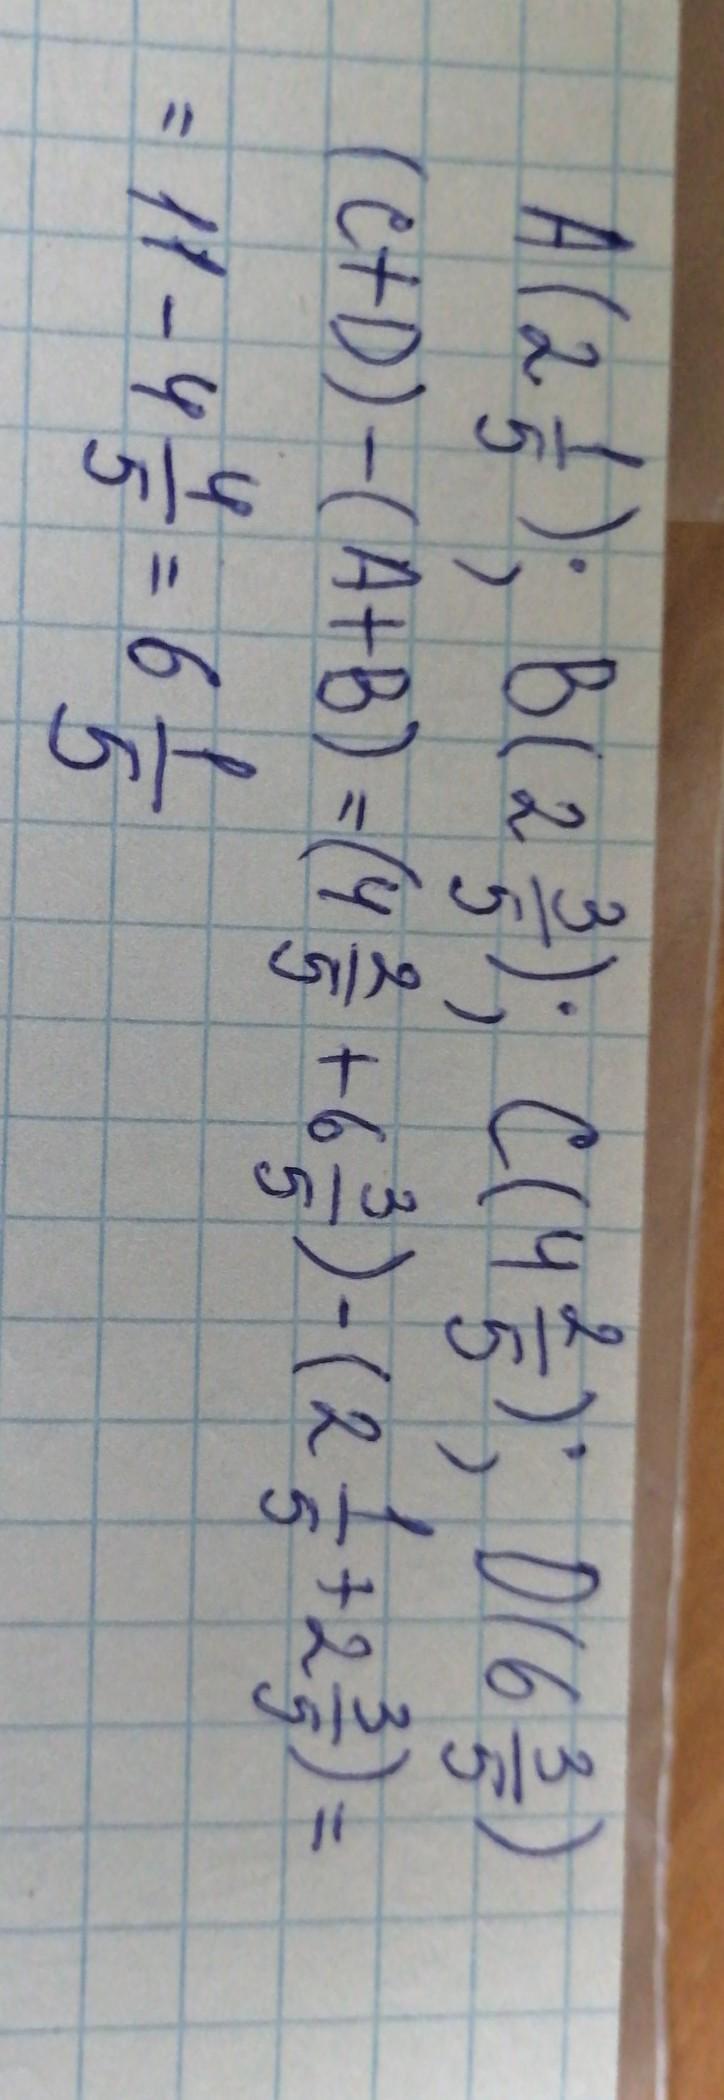 A(2 1/5); B(2 3/5); C(4 2/5); D(6 3/5)
(C+D)-(A+B)=(4 2/5+6 3/5)-(2 1/5+2 3/5)=
=11-4 4/5=6 1/5